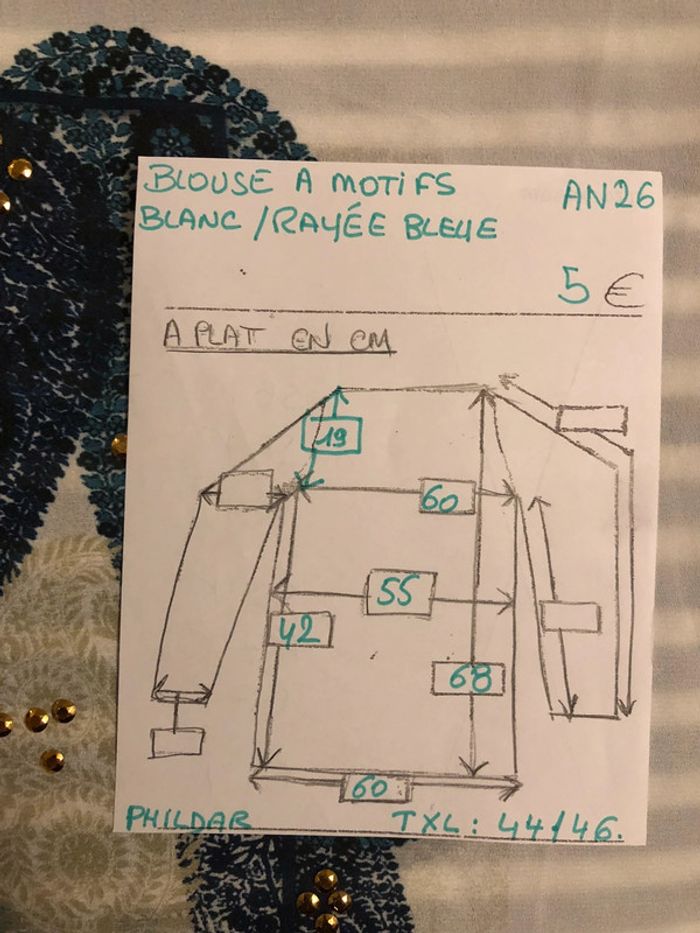 BLOUSE A MOTIFS
AN26
BLANC / RAYÉE BLEUE
5 €
A PLAT EN CM
19
60
55
42
68
60
PHILDAR
TXL : 44/46.